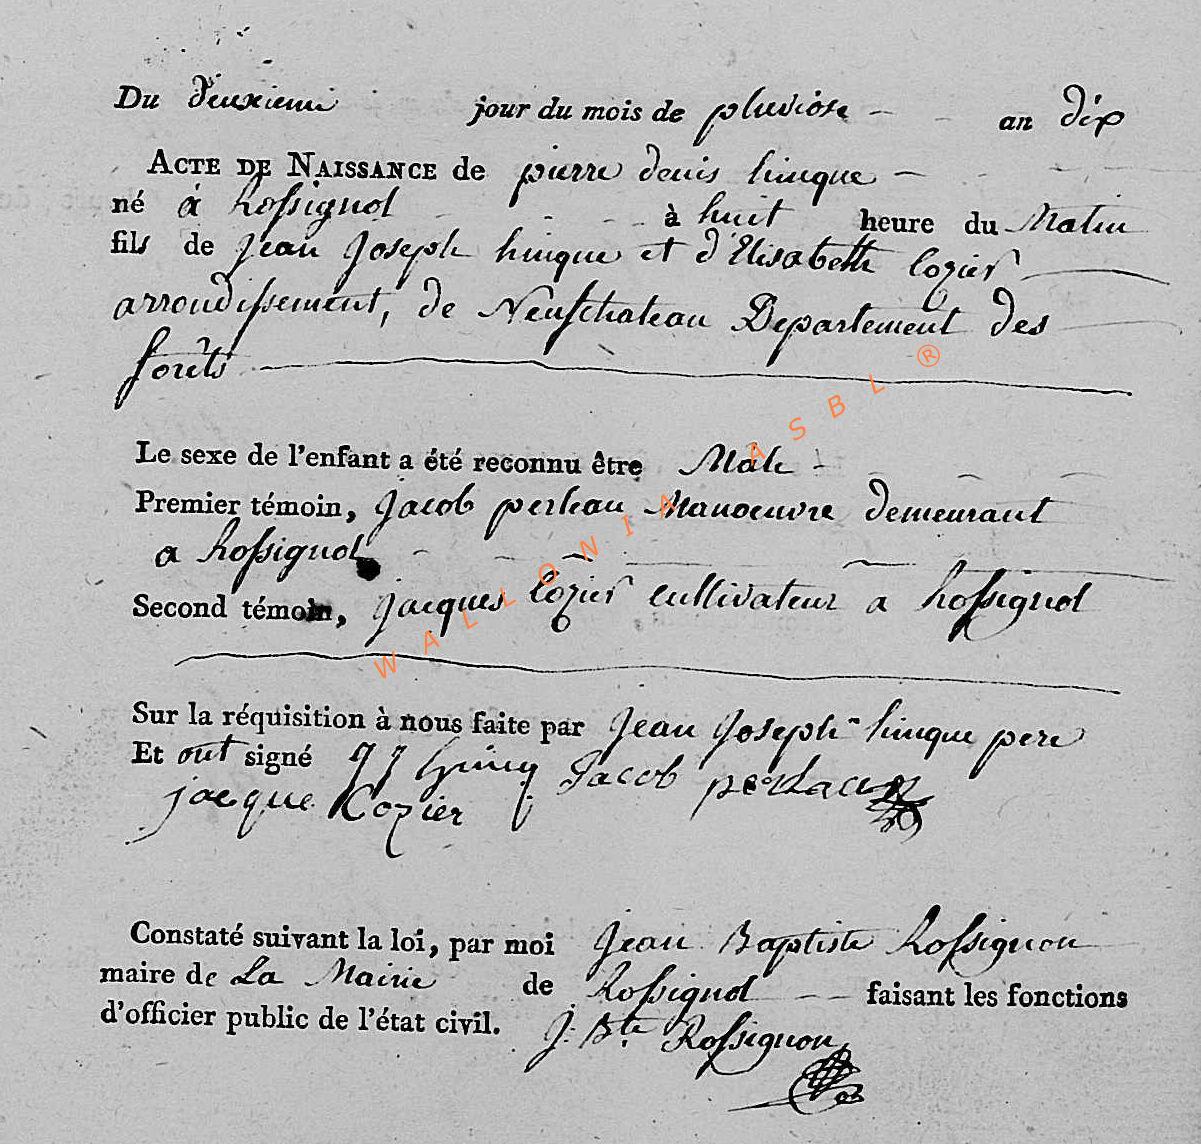 Du deuxieme jour du mois de pluviose an dix
ACTE DE NAISSANCE de pierre denis hinque
né à Rossignol à huit heure du Matin
fils de Jean Joseph hinque et d'Elisabeth Cozier
arrondissement, de Neufchateau Departement des
forêts
Le sexe de l'enfant a été reconnu être Male
Premier témoin, Jacob perleau Manoeuvre demeurant
a Rossignol
Second témoin, jacques Cozier cultivateur a Rossignol
Sur la réquisition à nous faite par Jean Joseph hinque pere
Et ont signé J J hinq Jacob
jacque Cozier
Constaté suivant la loi, par moi Jean Baptiste Rossignon
maire de La Mairie de Rossignol faisant les fonctions
d'officier public de l'état civil. J. Bte Rossignon
WALLONIA ASBL ®